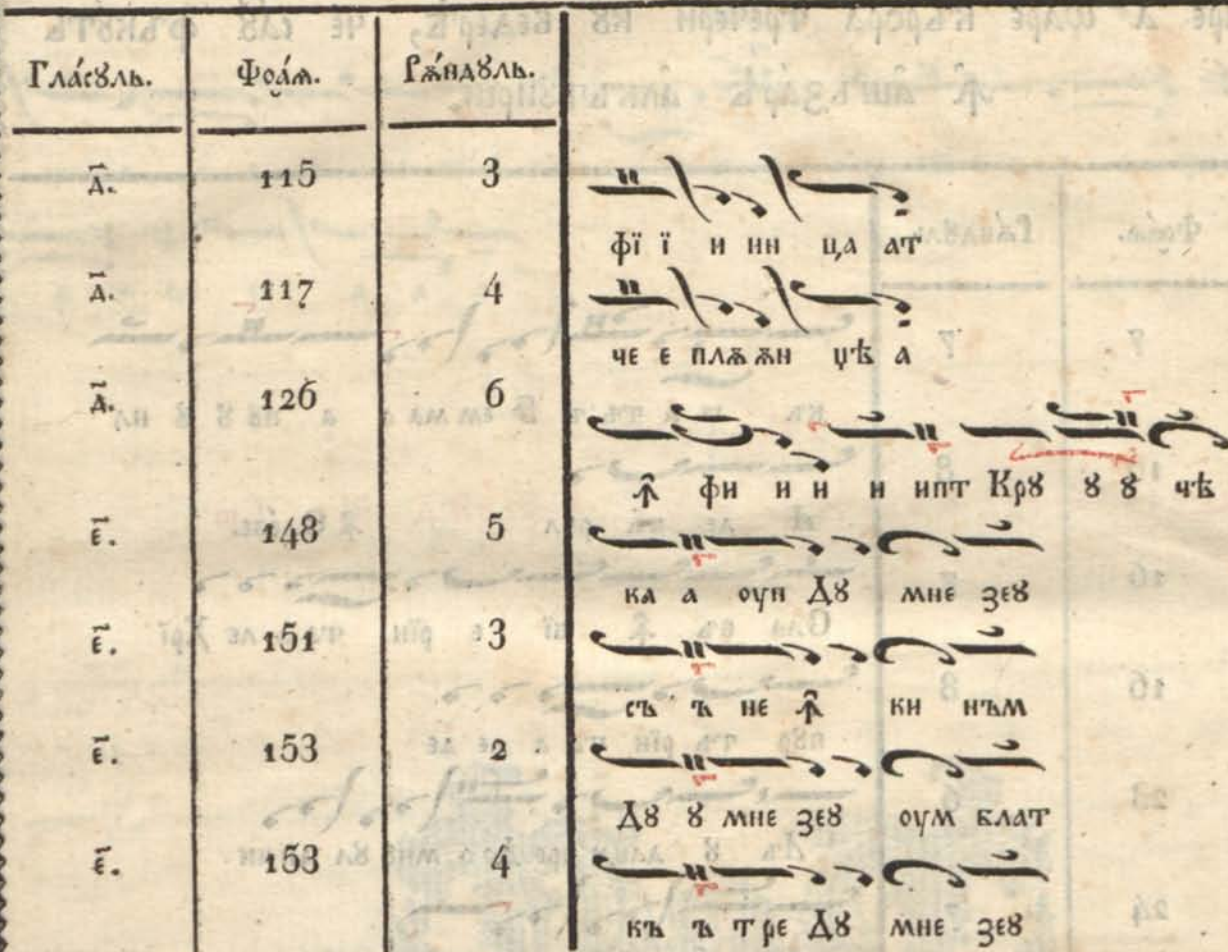 Гла́сꙋль. Фоа́ꙗ. Рѫ́ндꙋль.
а҃. 115 3
фїї и ин ца ат
а҃. 117 4
че е плѫ ѫн цѣ а
а҃. 126 6
ꙟ фи и и и ипт Крꙋ ꙋ ꙋ чѣ
е҃. 148 5
ка а оун Дꙋ мне зеꙋ
е҃. 151 3
съ ъ не ꙟ ки нъм
е҃. 153 2
Дꙋ ꙋ мне зеꙋ оум блат
е҃. 153 4
къ ъ тре Дꙋ мне зеꙋ